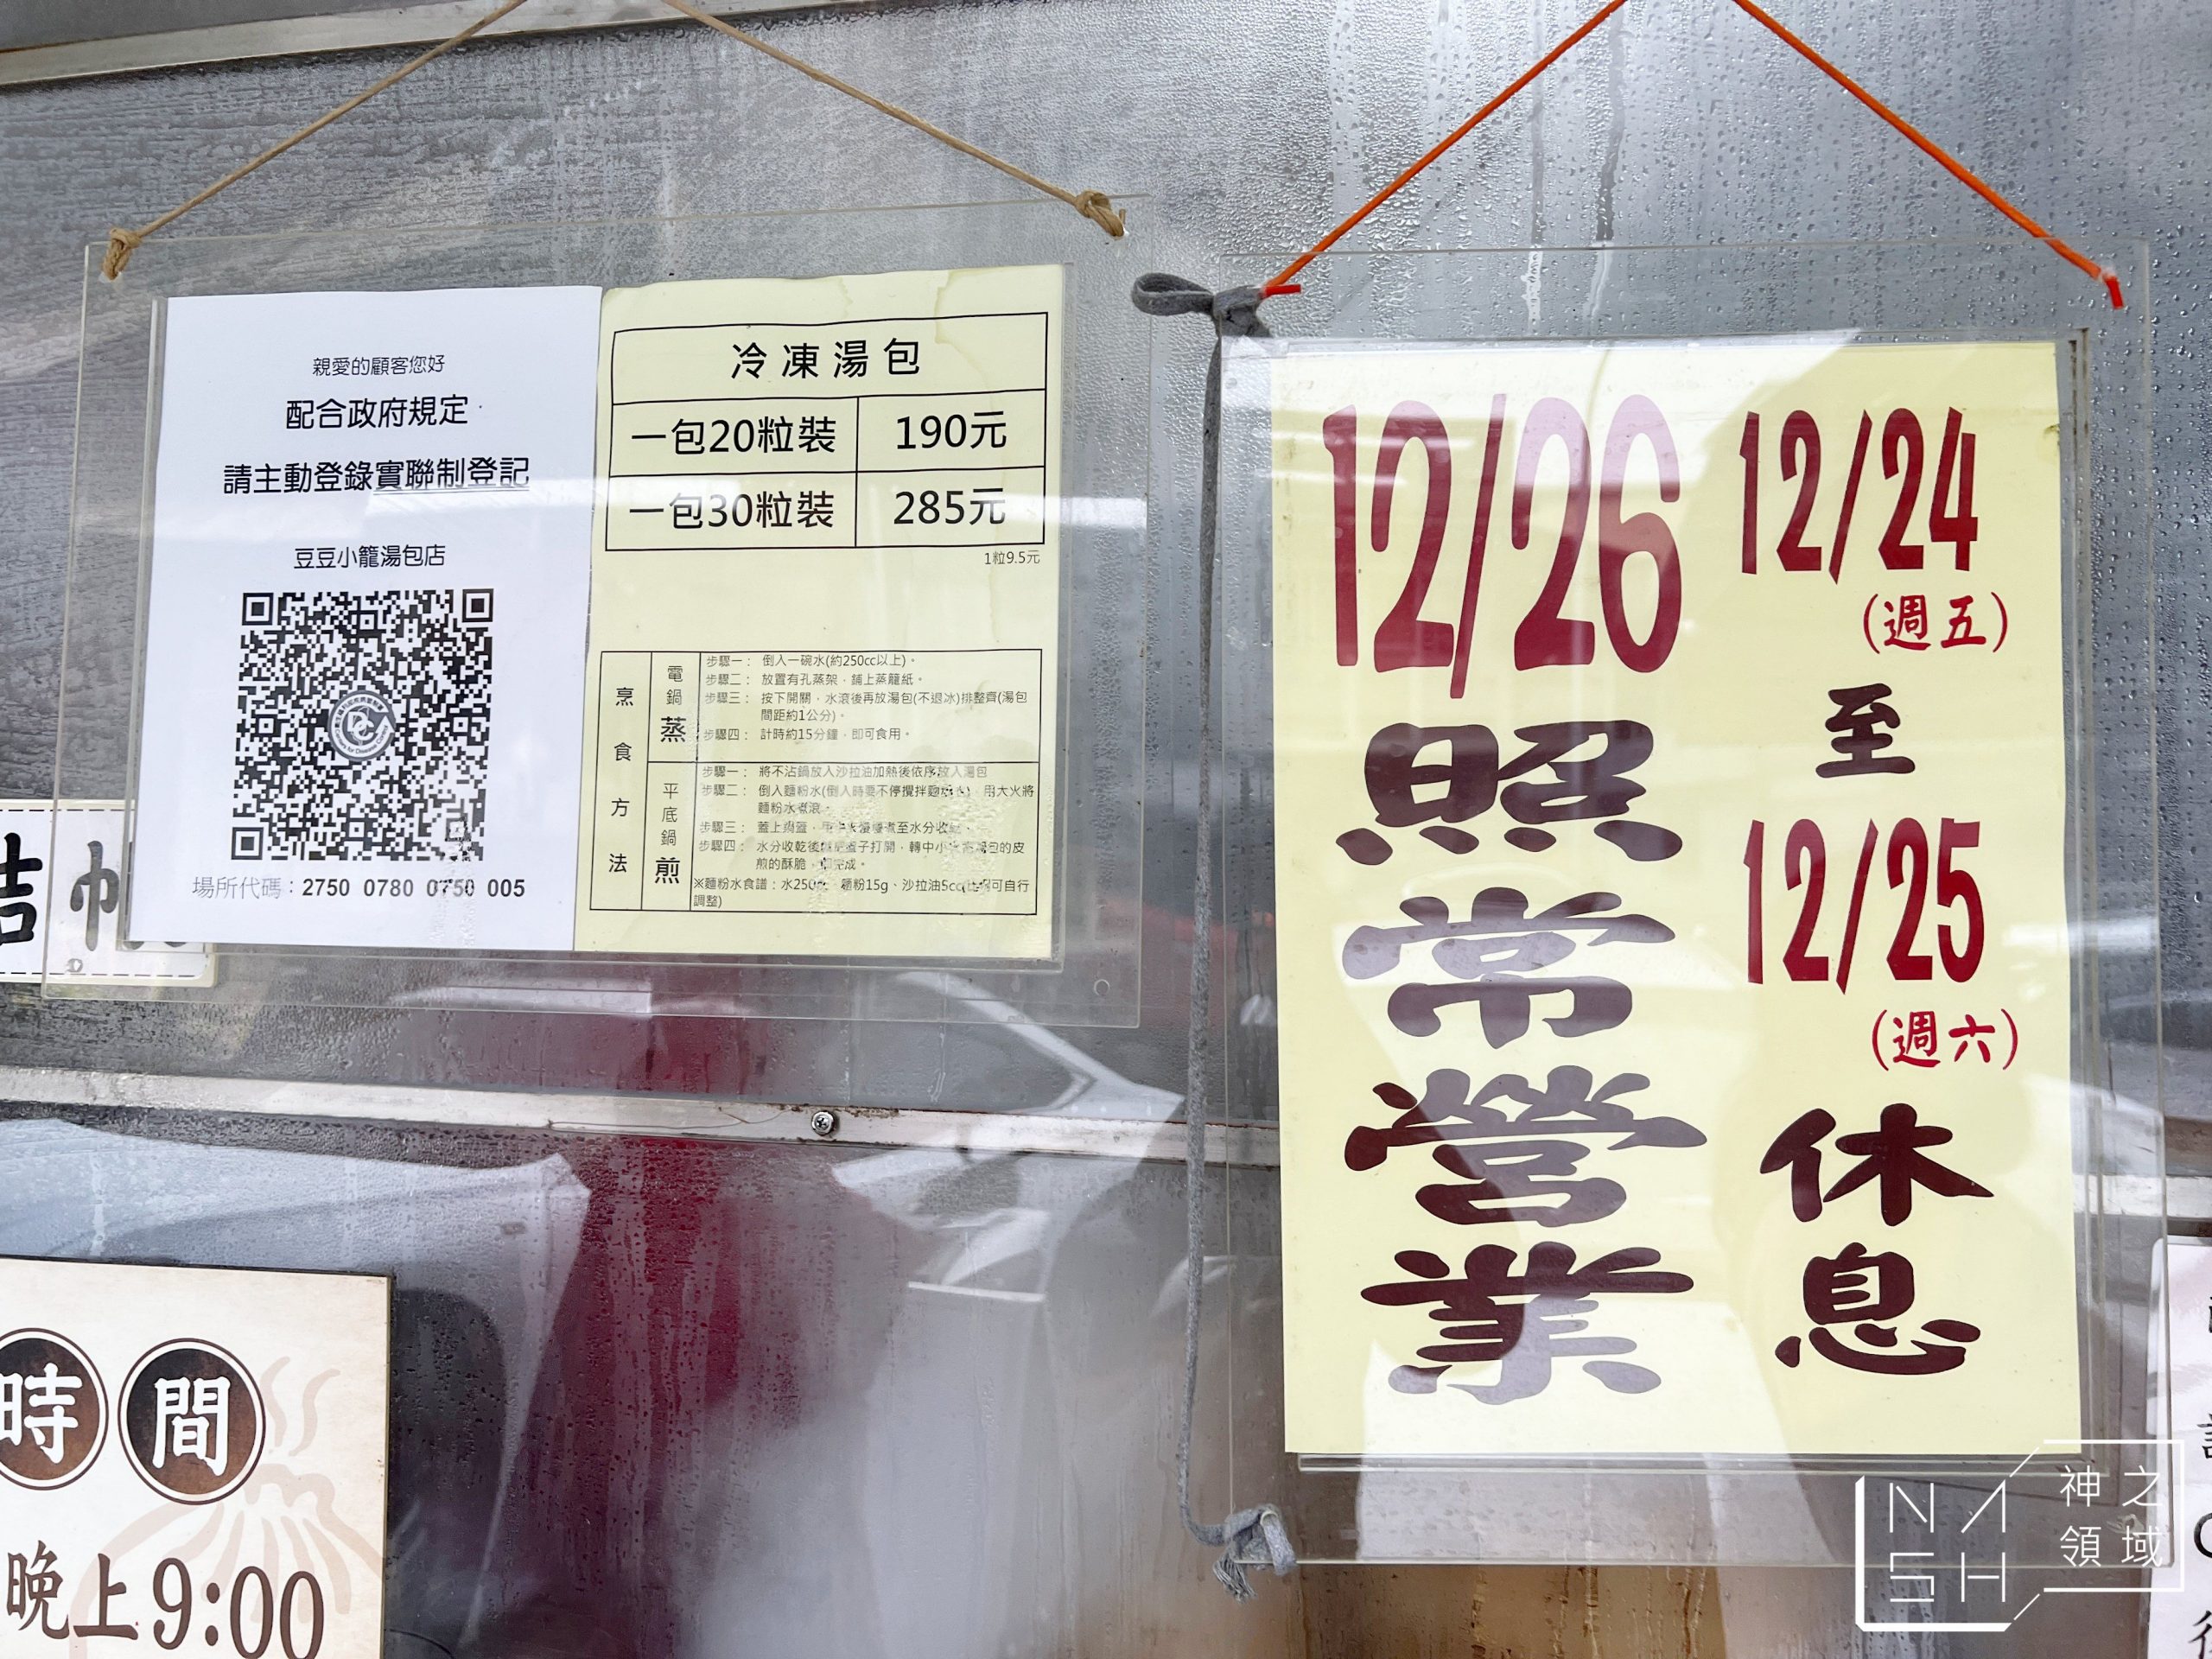 親愛的顧客您好
配合政府規定
請主動登錄實聯制登記
豆豆小籠湯包店
場所代碼：2750 0780 0750 005
冷凍湯包
一包20粒裝 190元
一包30粒裝 285元
1粒9.5元
烹食方法
電鍋蒸
步驟一： 倒入一碗水(約250cc以上)。
步驟二： 放置有孔蒸架，鋪上蒸籠紙。
步驟三： 按下開關，水滾後再放湯包(不退冰)排整齊(湯包
間距約1公分)。
步驟四： 計時約15分鐘，即可食用。
平底鍋煎
步驟一： 將不沾鍋放入沙拉油加熱後依序放入湯包
步驟二： 倒入麵粉水(倒入時要不停攪拌麵粉水)，用大火將
麵粉水煮滾。
步驟三： 蓋上鍋蓋，
煮至水分收乾。
步驟四： 水分收乾後
蓋子打開，轉中小火
湯包的皮
煎的酥脆，即完成。
※麵粉水食譜：水250cc、麵粉15g、沙拉油5cc(比例可自行
調整)
12/24
(週五)
至
12/25
(週六)
休息
12/26
照常營業
時間
晚上9:00
NASH
神之
領域